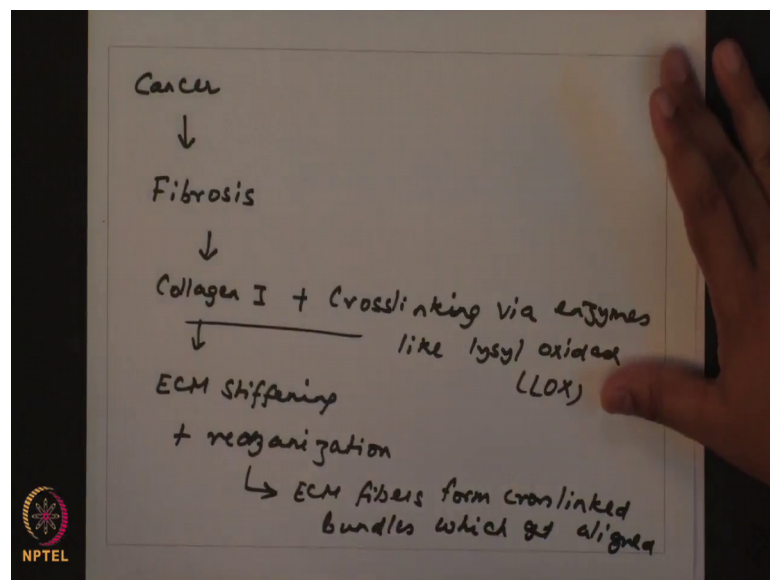 Cancer
↓
Fibrosis
↓
Collagen I + Crosslinking via enzymes
like lysyl oxidase
(LOX)
↓
ECM stiffening
+ reorganization
↳ ECM fibers form crosslinked
bundles which get aligned
NPTEL